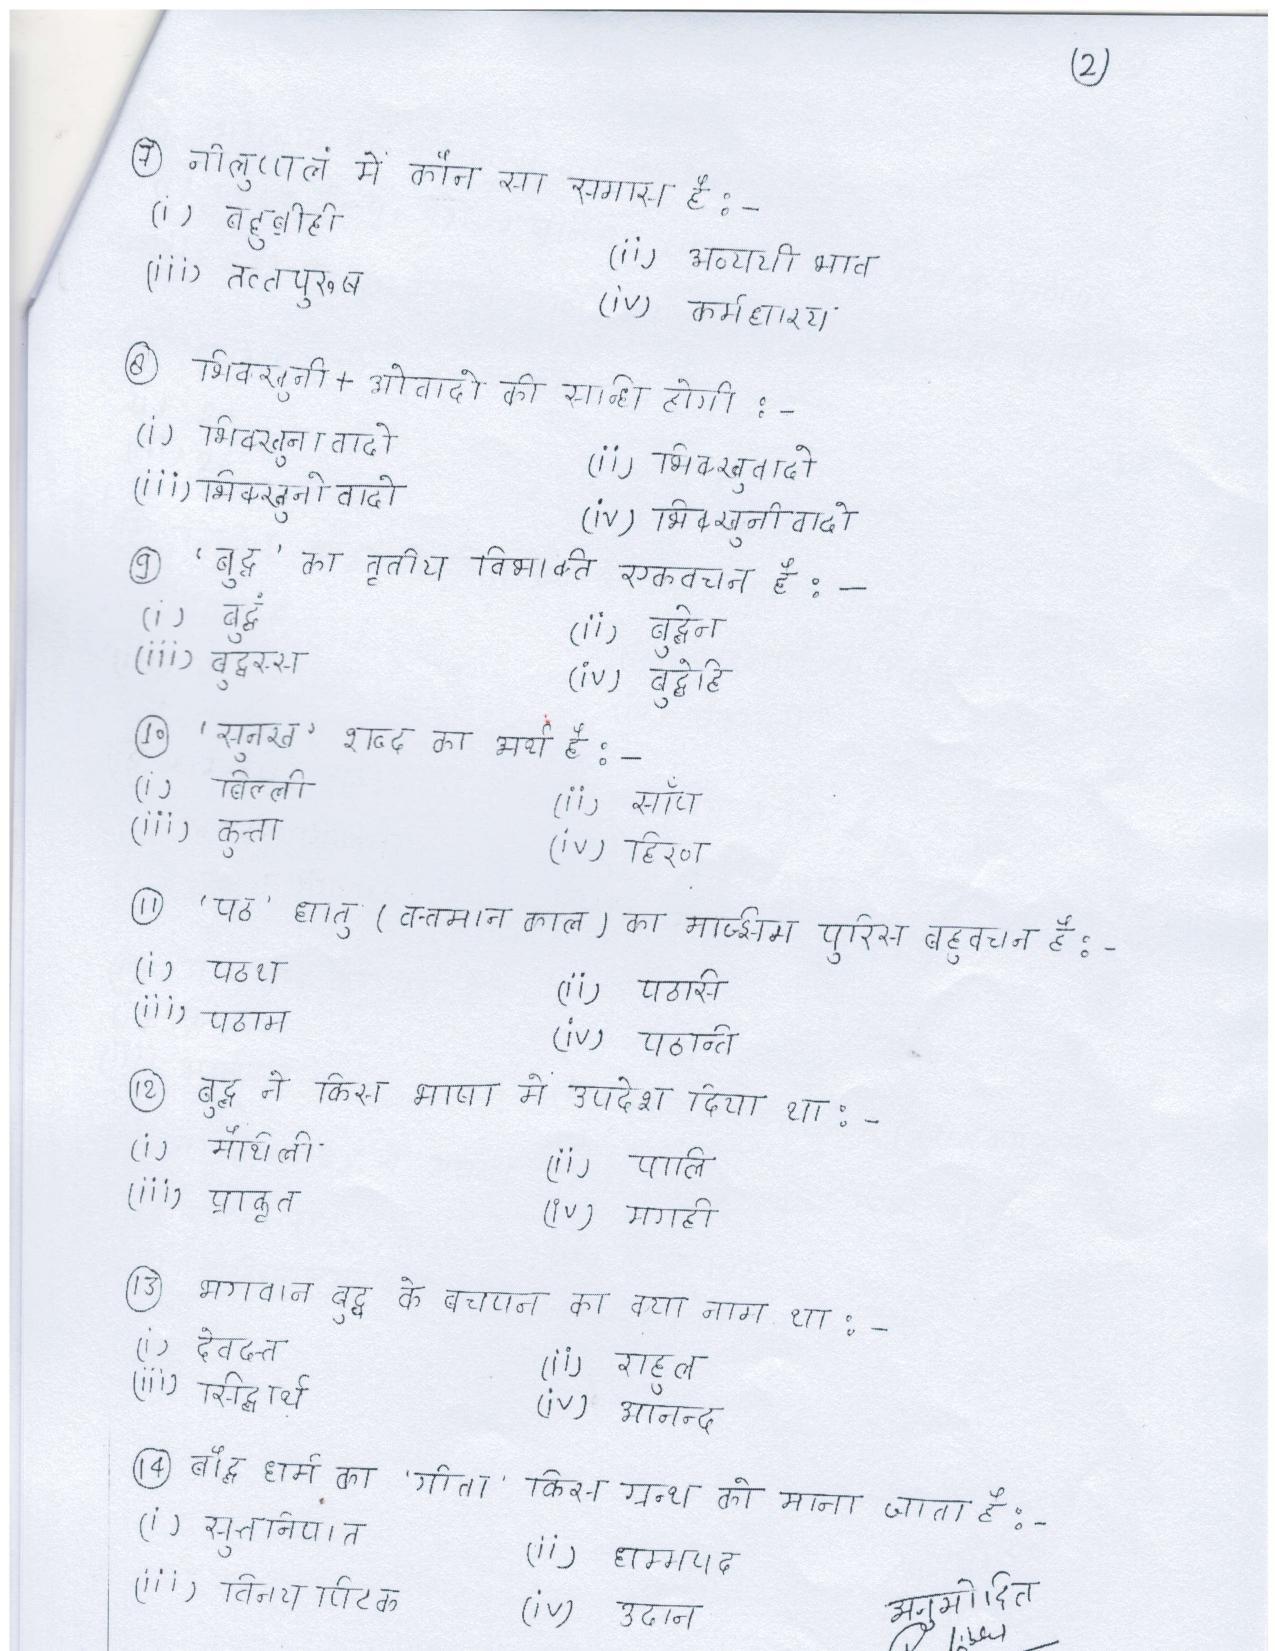 (2)
7 नीलुप्पलं में कौन सा समास है :-
(i) बहुब्रीही
(ii) अव्ययी भाव
(iii) तत्तपुरुष
(iv) कर्मधारय
8 भिक्खुनी + ओवादो की सन्धि होगी :-
(i) भिक्खुनावादो
(ii) भिक्खुवादो
(iii) भिक्खुनोवादो
(iv) भिक्खुनीवादो
9 'बुद्ध' का तृतीय विभक्ति एकवचन है :-
(i) बुद्धं
(ii) बुद्धेन
(iii) बुद्धस्स
(iv) बुद्धेहि
10 'सुनख' शब्द का अर्थ है :-
(i) बिल्ली
(ii) साँप
(iii) कुत्ता
(iv) हिरण
11 'पठ' धातु (वत्तमान काल) का मज्झिम पुरिस बहुवचन है :-
(i) पठथ
(ii) पठसि
(iii) पठाम
(iv) पठन्ति
12 बुद्ध ने किस भाषा में उपदेश दिया था :-
(i) मैथिली
(ii) पालि
(iii) प्राकृत
(iv) मगही
13 भगवान बुद्ध के बचपन का क्या नाम था :-
(i) देवदत्त
(ii) राहुल
(iii) सिद्धार्थ
(iv) आनन्द
14 बौद्ध धर्म का 'गीता' किस ग्रन्थ को माना जाता है :-
(i) सुत्तनिपात
(ii) धम्मपद
(iii) विनय पिटक
(iv) उदान
अनुमोदित